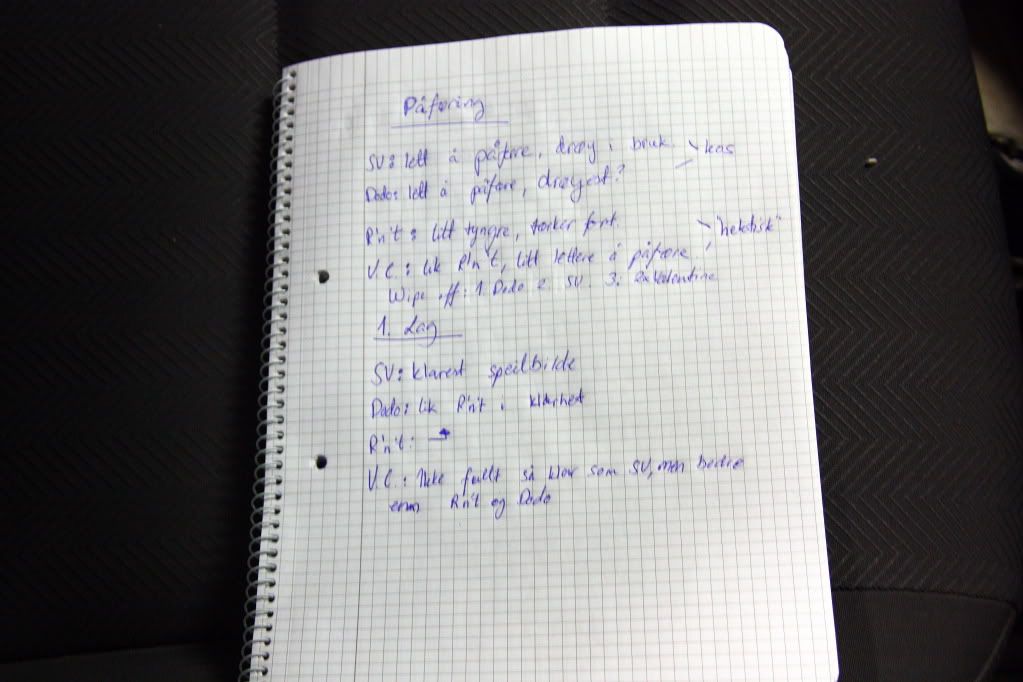 Påføring
SV: lett å påføre, drøy i bruk. kos
Dodo: lett å påføre, drøyest?
R'n't: litt tyngre, tørker fort. "hektisk"
V.C.: lik R'n't, litt lettere å påføre
Wipe off: 1. Dodo 2. SV. 3.
1. Lag
SV: klarest speilbilde
Dodo: lik R'n't i klarhet
R'n't:
V.C.: Ikke fullt så klar som SV, men bedre
enn R'n't og Dodo